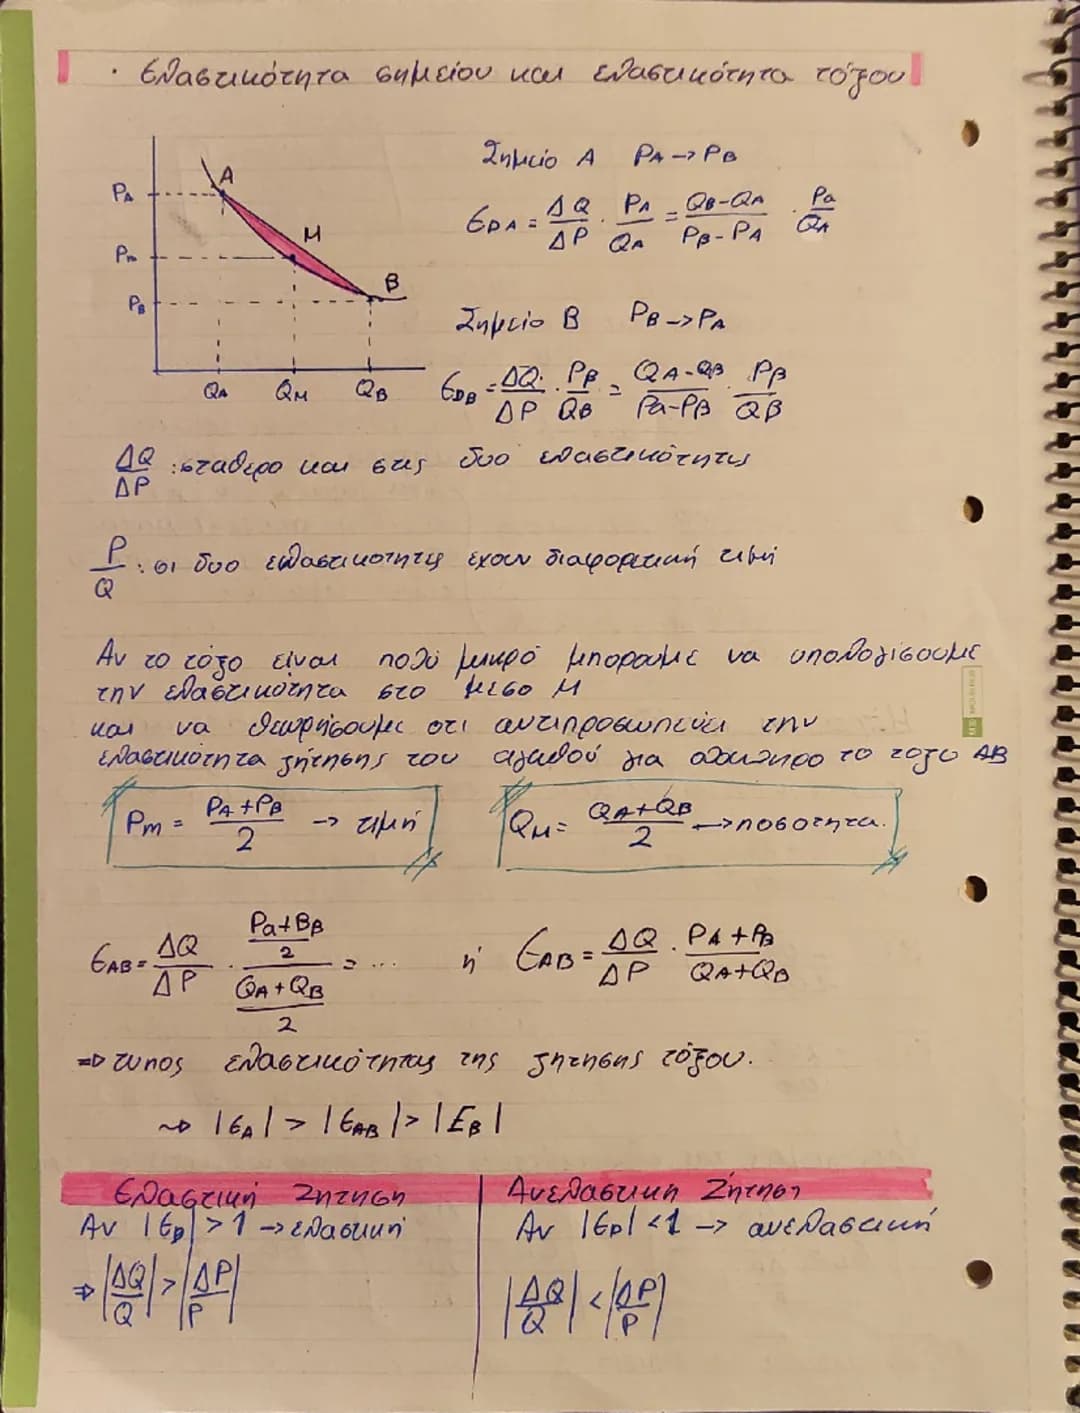 · Ελαστικότητα σημείου και ελαστικότητα τόξου
PA
A
Pm
M
PB
B
QA QM QB
Σημείο A PA → PB
ЄDA = ΔQ/ΔP · PA/QA = QB-QA/PB-PA · Pa/QA
Σημείο B PB → PA
ЄDB = ΔQ/ΔP · PB/QB = QA-QB/Pa-PB · PB/QB
ΔQ/ΔP : σταθερο και στις δυο ελαστικότητες
P/Q : οι δυο ελαστικοτητες εχουν διαφορετική τιμή
Αν το τόξο είναι πολύ μικρό μπορουμε να υπολογισουμε
την ελαστικότητα στο μεσο Μ
και να θεωρήσουμε οτι αντιπροσωπευει την
ελαστικότητα ζήτησης του αγαθού για ολοκληρο το τοξο ΑΒ
Pm = PA+PB/2 → τιμή
QM = QA+QB/2 → ποσοτητα.
ЄAB = ΔQ/ΔP · Pa+BB/2 / QA+QB/2 = ... ή ЄAB = ΔQ/ΔP · PA+PB/QA+QB
⇒ τυπος ελαστικότητας της ζητησης τόξου.
⇝ |ЄA| > |ЄAB| > |EB|
Ελαστική Ζητηση
Αν |ЄD| > 1 → ελαστική
⇒ |ΔQ/Q| > |ΔP/P|
Ανελαστικη Ζήτηση
Αν |ЄD| < 1 → ανελαστική
|ΔQ/Q| < |ΔP/P|